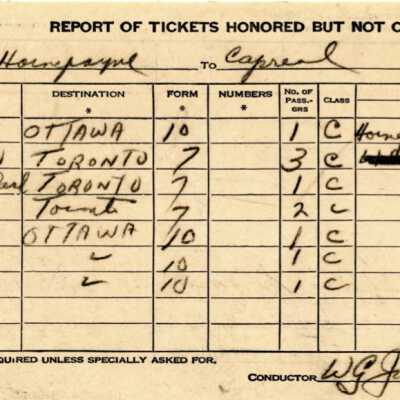 REPORT OF TICKETS HONORED BUT NOT
Hornepayne TO Capreol
DESTINATION FORM NUMBERS NO. OF PASS-GRS CLASS
* * *
OTTAWA 10 1 C
TORONTO 7 3 C
TORONTO 7 1 C
Toronto 7 2 C
OTTAWA 10 1 C
" 10 1 C
" 10 1 C
QUIRED UNLESS SPECIALLY ASKED FOR.
CONDUCTOR WG